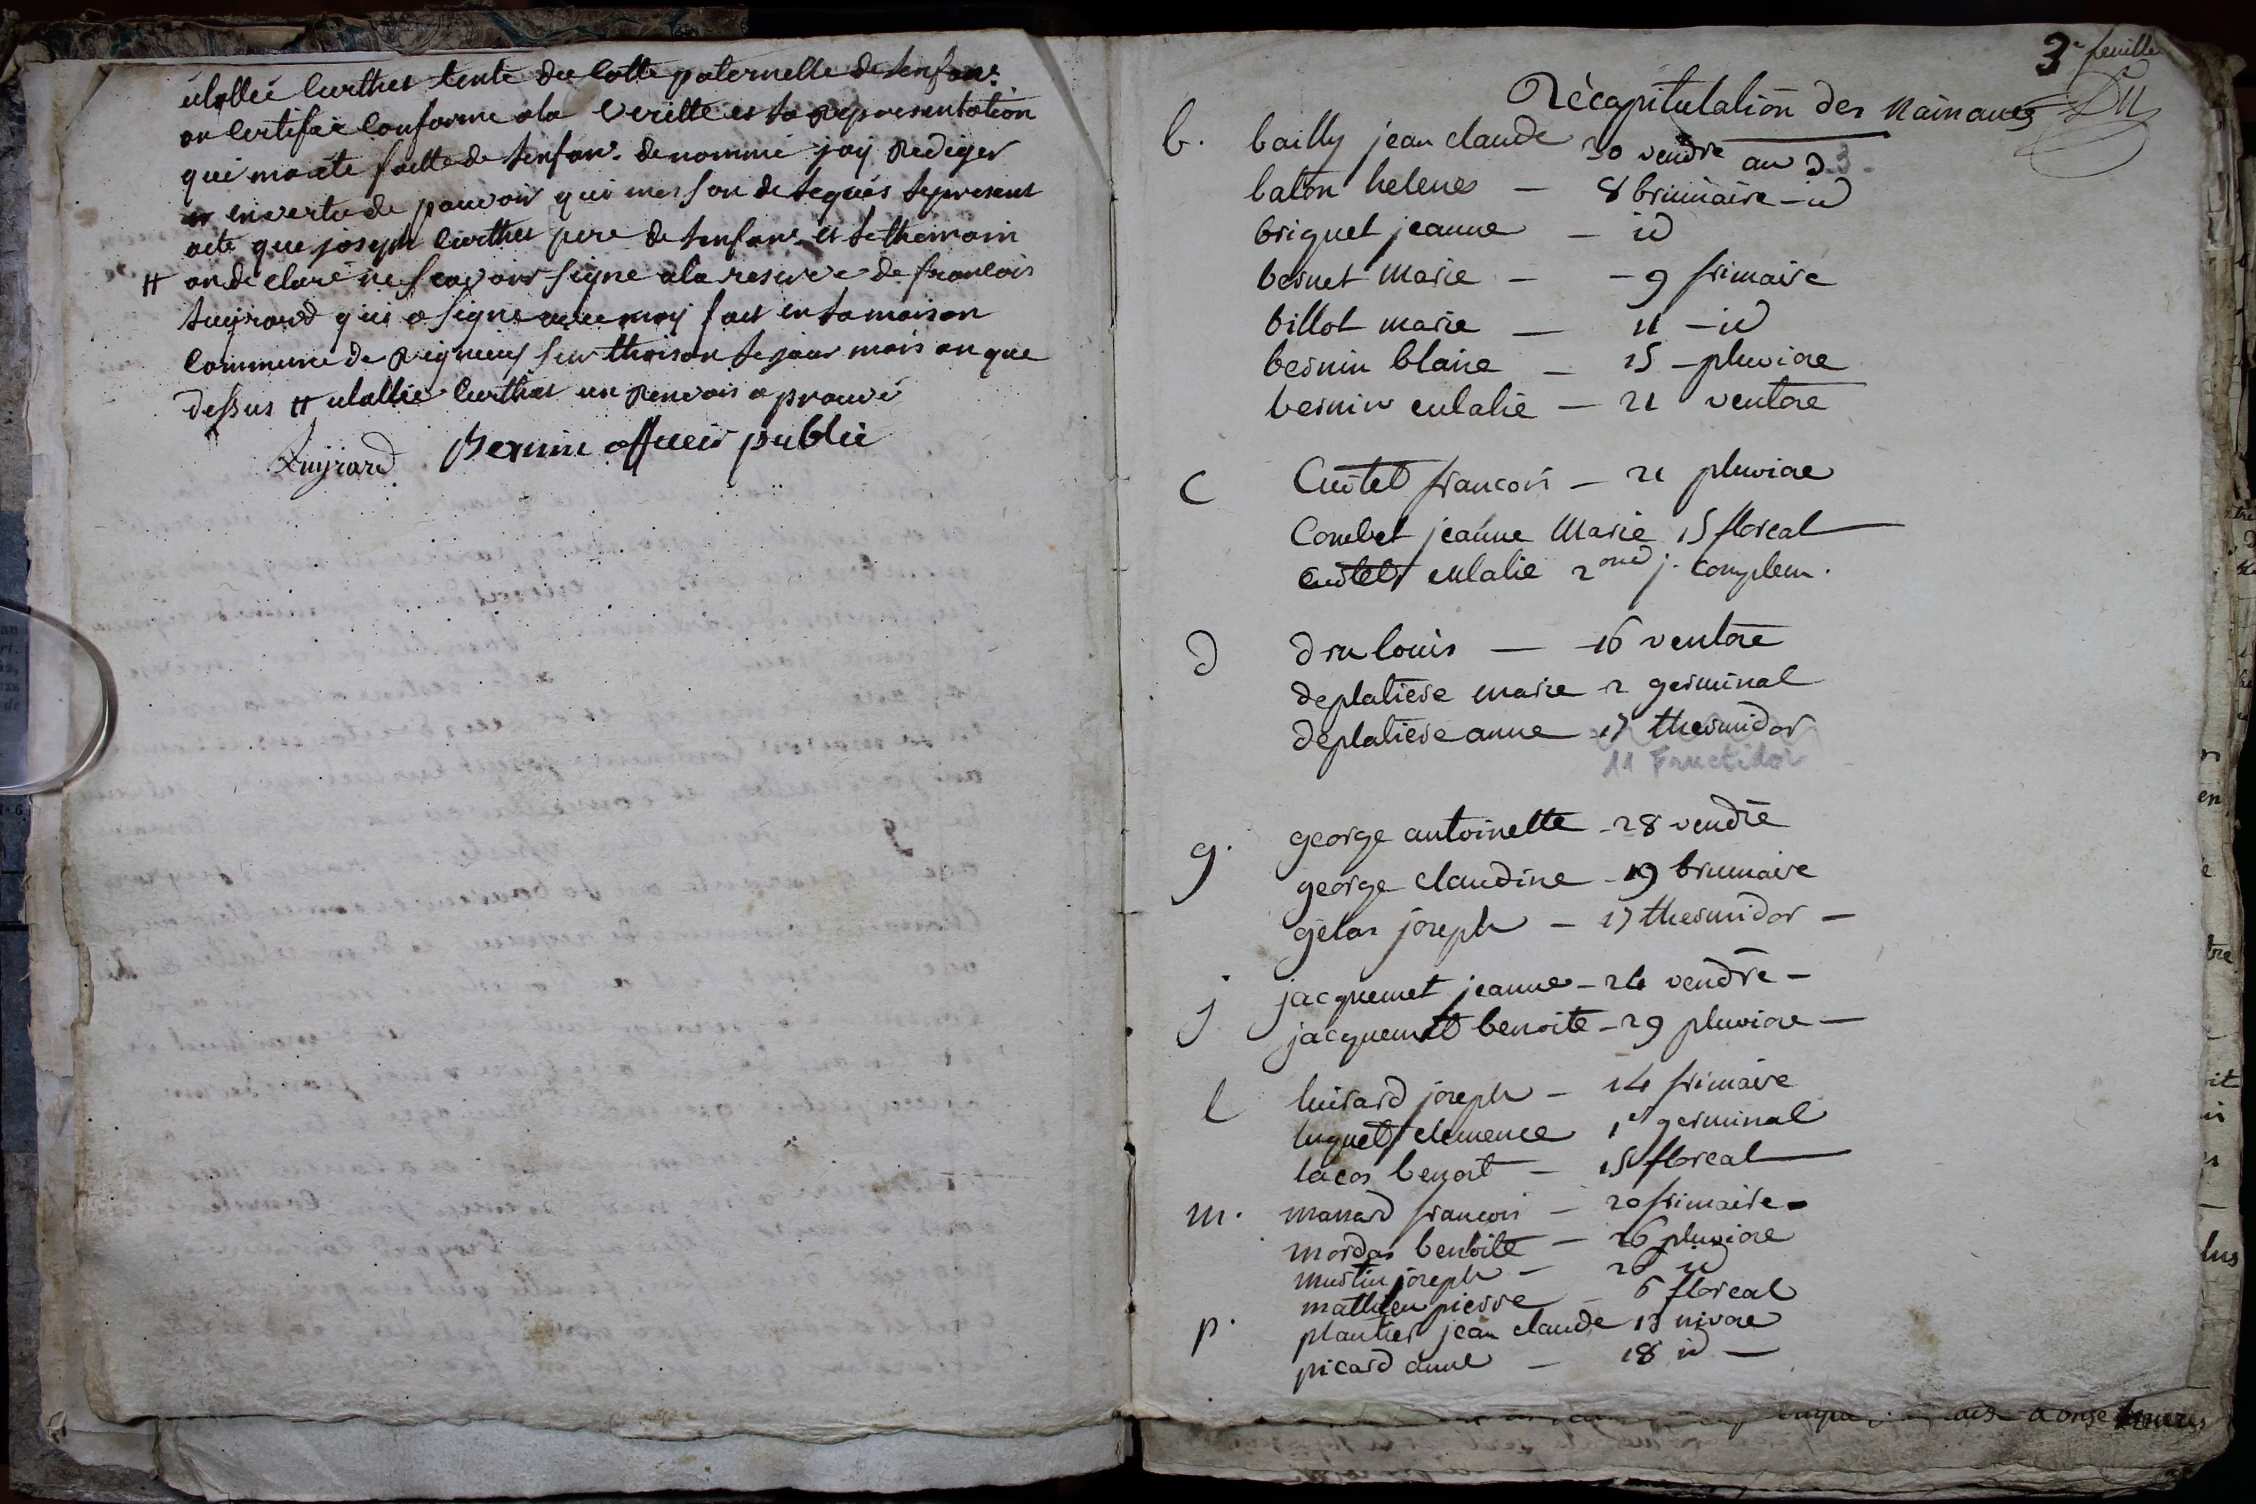 ulallie Curthet tente du Cotte paternelle de Lenfant
on Certifiié Conforme ala veritté et La Representation
qui ma ete faitte de Lenfant denommé jay Rediger
en vertu de pouvoir qui mes son de Legués Lepresent
acte que joseph Curthet pere de Lenfant et Lethemoin
# on de Claré ne scavoir signe ala reserve de francois
Luyrard qui a signe avec moy fait en La maison
Commune de Rigneux sur thoison Le jour mois an que
dessus # ulallie Curthet un Renvois a prouvé
Luyrard Bernin officier public
3e feuille
Du
Récapitulation des Nainances
b. bailly jean claude 30 vendre an 3 3
baton helenes — 8 brumaire — id
briguet jeanne — id
bernet Marie — — 9 frimaire
billot marie — 11 — id
bernin Claire — 15 — pluviose
bernin eulalie — 21 ventose
C Curtet francois — 21 pluviose
Combet jeanne Marie 15 floreal
Curtet eulalie 2ond j. complem.
D Dru louis — 16 ventose
deplatiere marie 2 germinal
deplatiere anne 17 thermidor
11 Fructidor
g. george antoinette — 28 vendre
george claudine — 19 brumaire
gelas joseph — 17 thermidor —
j jacquemet jeanne — 24 vendre —
jacquemet benoite — 29 pluviose —
l luirard joseph — 14 frimaire
luquet clemence 1er germinal
lacos benoit — 15 floreal
m. manard francois — 20 frimaire
mordas benoite — 26 pluviose
mustin joseph — 26 id
mathieu pierre — 6 floreal
p. plantier jean claude 13 nivose
picard anne — 18 id —
a onze heures